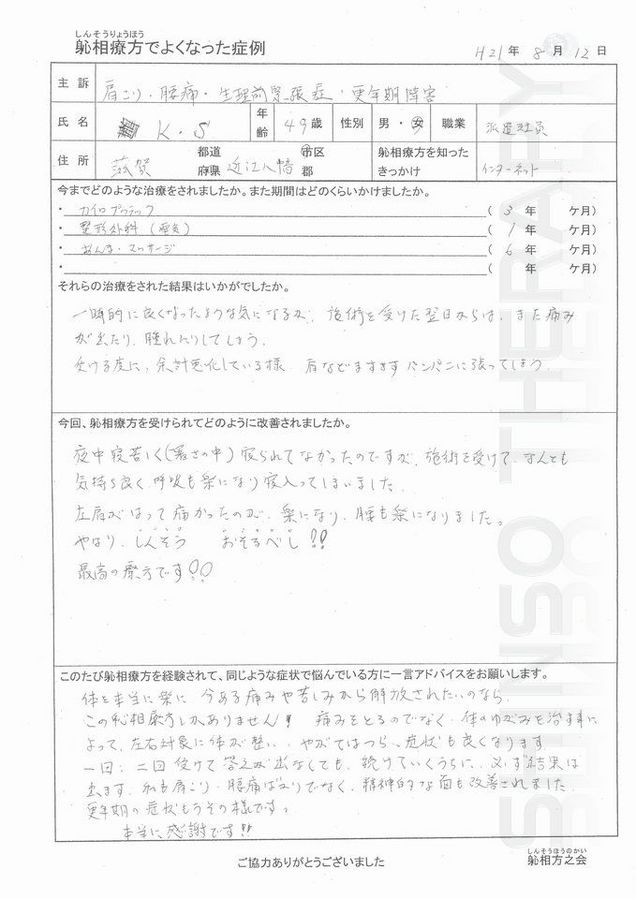 しんそうりょうほう
躰相療方でよくなった症例
H21年 8月 12日
主訴 肩こり・腰痛・生理前緊張症・更年期障害
氏名 K・S 年齢 49歳 性別 男・女 職業 派遣社員
住所 滋賀 都道府県 近江八幡 市区郡 躰相療方を知ったきっかけ インターネット
今までどのような治療をされましたか。また期間はどのくらいかけましたか。
・カイロプラクティック (3年 ケ月)
・整形外科(電気) (1年 ケ月)
・あんま・マッサージ (6年 ケ月)
・ ( 年 ケ月)
それらの治療をされた結果はいかがでしたか。
一時的に良くなったような気になるが、施術を受けた翌日からは、また痛み
が出たり、腫れたりしてしまう。
受ける度に、余計悪化している様 肩などますますパンパンに張ってしまう。
今回、躰相療方を受けられてどのように改善されましたか。
夜中寝苦しく(暑さの中)寝られてなかったのですが、施術を受けて、なんとも
気持ち良く呼吸も楽になり寝入ってしまいました。
左肩がはって痛かったのが、楽になり、腰も楽になりました。
やはり、しんそう おそるべし!!
最高の療方です!!
このたび躰相療方を経験されて、同じような症状で悩んでいる方に一言アドバイスをお願いします。
体を本当に楽に 今ある痛みや苦しみから解放されたいのなら
この躰相療方しかありません! 痛みをとるのでなく、体のゆがみを治す事に
よって、左右対象に体が整い、やがてはつらい症状も良くなります
一回、二回受けて答えが出なくても、続けていくうちに、必ず結果は
出ます。私も肩こり・腰痛ばかりでなく、精神的な面も改善されました。
更年期の症状もその様です。
本当に感謝です!!
ご協力ありがとうございました
しんそうほうのかい
躰相方之会
SHINSO THERAPY